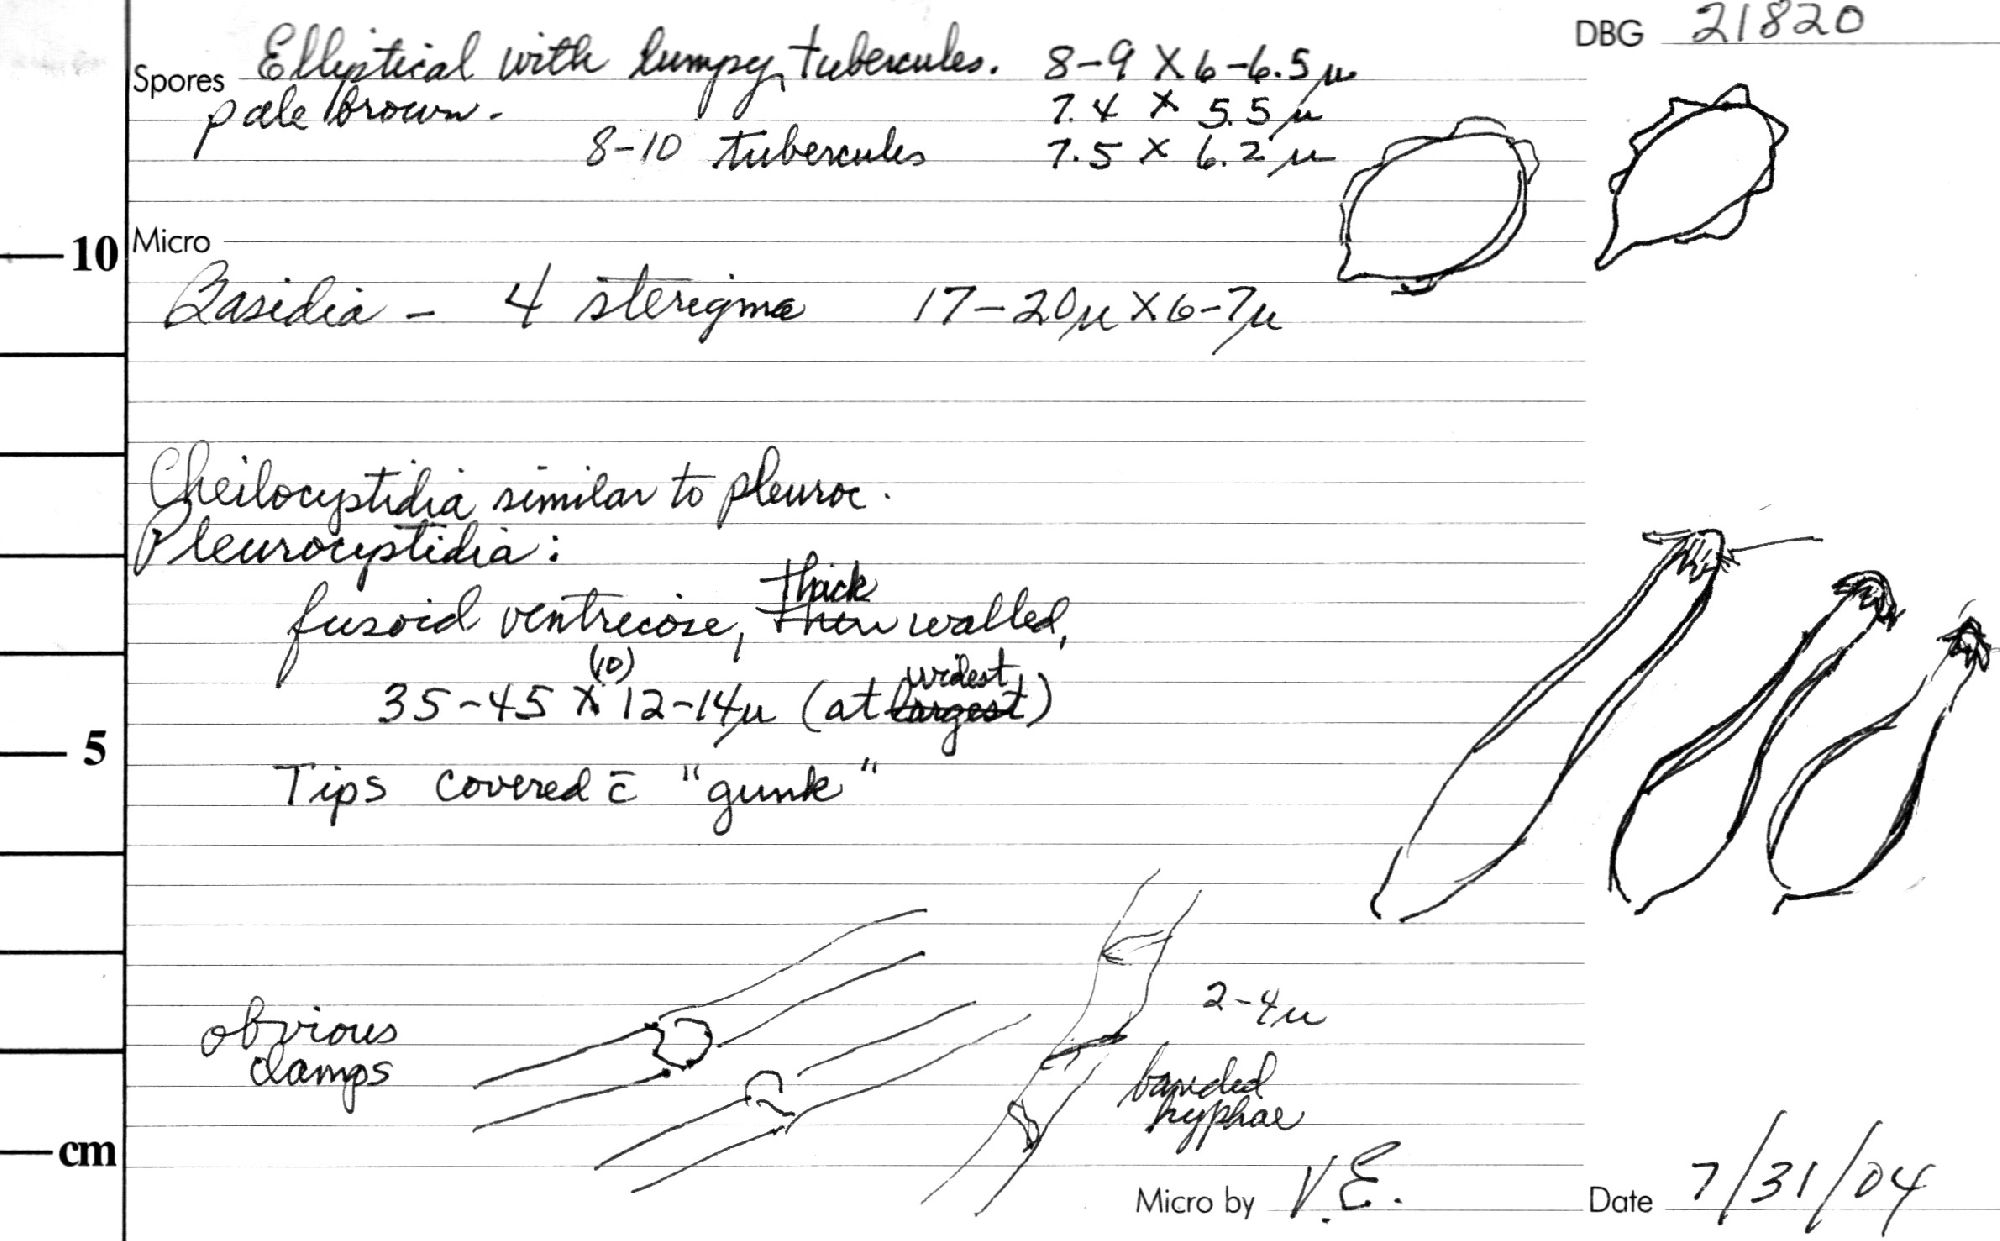 DBG 21820
Spores Elliptical with lumpy tubercules. 8-9 X 6-6.5 µ
pale brown. 7.4 X 5.5 µ
8-10 tubercules 7.5 X 6.2 µ
10
Micro
Basidia - 4 sterigma 17-20µ X 6-7µ
Cheilocystidia similar to pleuroc.
Pleurocystidia:
thick
fusoid ventricose, thin walled,
(10) widest
35-45 X 12-14µ (at largest)
5
Tips covered c̄ "gunk"
obvious
clamps
2-4µ
banded
hyphae
cm
Micro by V.E. Date 7/31/04